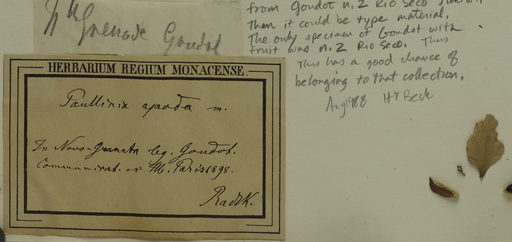 Nlle Grenade Goudot
from Goudot n. 2 Rio Seco
Then it could be type material,
The only specimen of Goudot with
fruit was n. 2 Rio Seco. Thus
This has a good chance of
belonging to that collection.
Aug 88 HT Beck
HERBARIUM REGIUM MONACENSE
Paullinia apoda m.
In Novo-Granata leg. Goudot.
Communicat. ex M. Paris 1898.
Radlk.